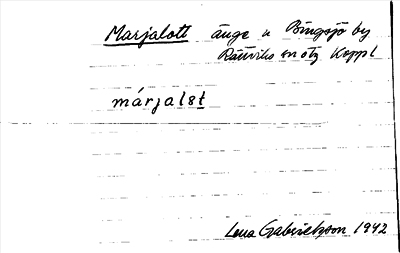 Marjalott änge u Bingsjö by
Rättviks sn ötz Koppl
márjalət
Lena Gabrielsson 1942